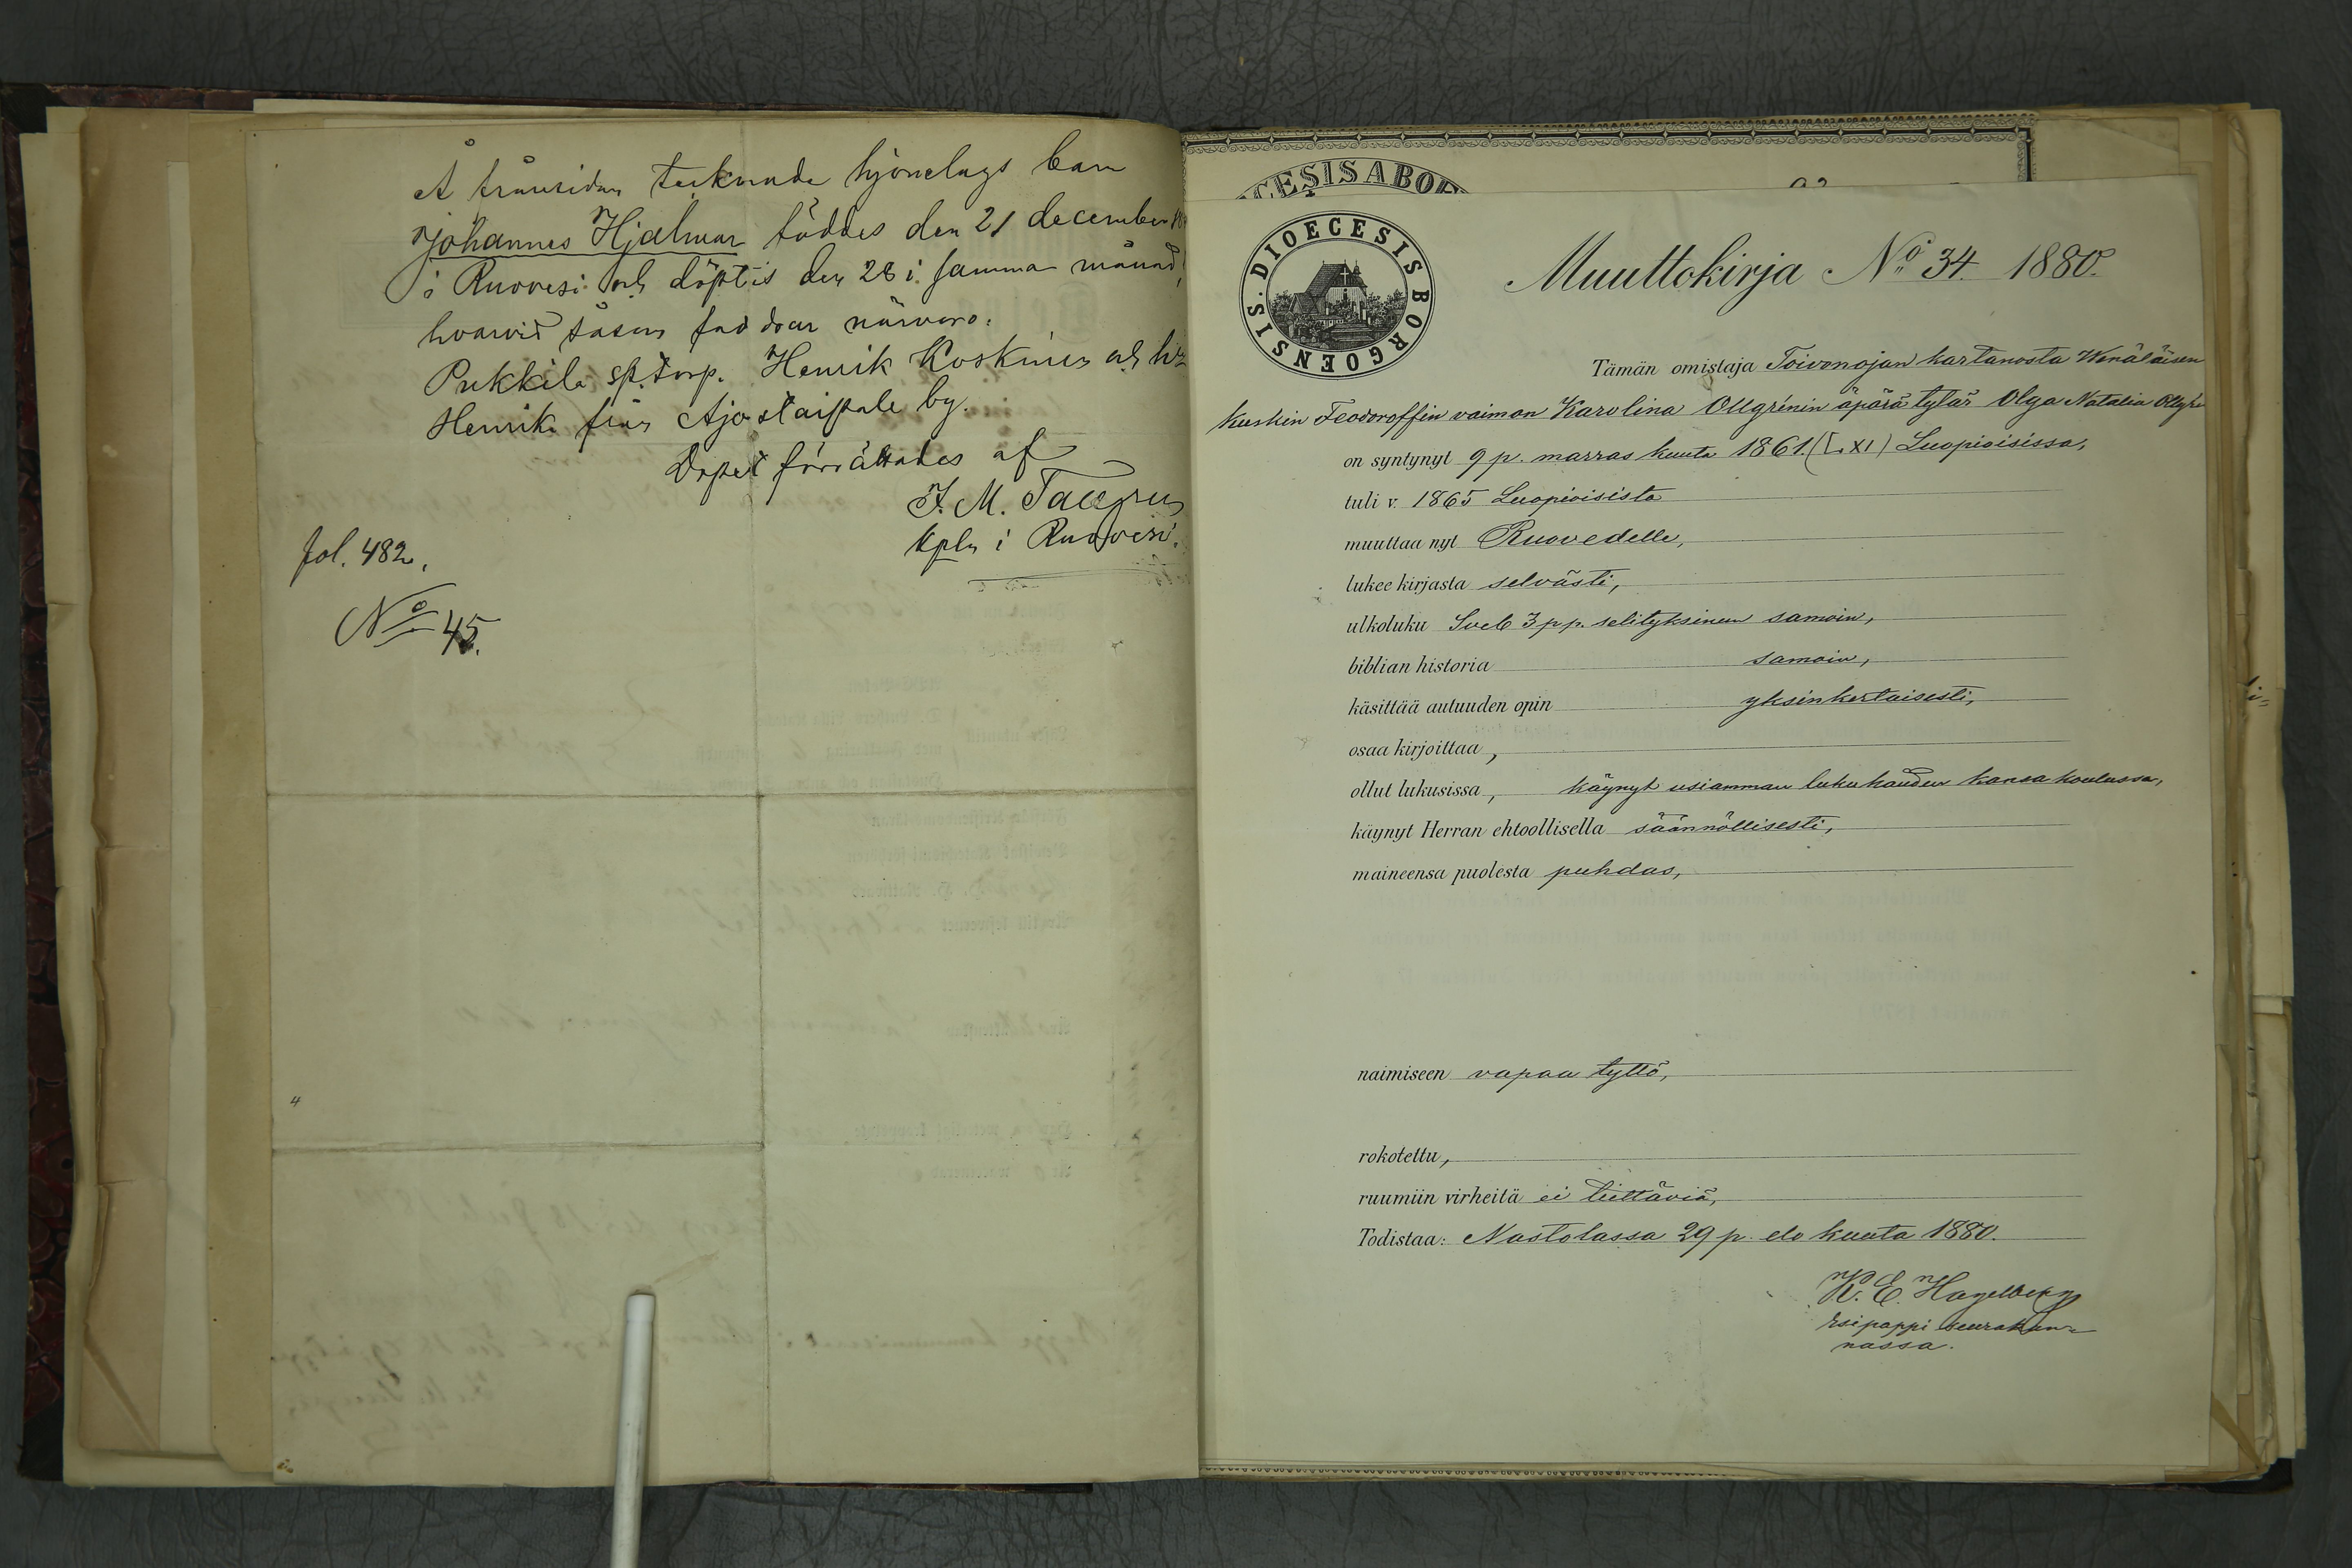 Å frånsidan tecknade hjonelags barn
Johannes Hjalmar föddes den 21 december
i Ruovesi och döptis den 28 i samma månad,
hvarvid såsom faddrar närvoro:
Pukkila sp.torp. Henrik Koskinen och h:
Henrika från Ajostaipale by.
Dopet förrättades af
F. M. Taccgren
Kpln i Ruovesi.
fol. 482.
No 45.
4
CESIS ABOE
DIOECESIS BORGOENSIS.
Muuttokirja No 34. 1880.
Tämän omistaja Toivonojan kartanosta Wenäläisen
kuskin Feodoroffin vaimon Karolina Ollgrénin äpärä tytär Olga Natalia Ollgré
on syntynyt 9 p. marras kuuta 1861. (L.XI) Luopioisissa,
tuli v. 1865 Luopioisista
muuttaa nyt Ruovedelle,
lukee kirjasta selvästi,
ulkoluku Sveb 3 pp. selityksineen samoin,
biblian historia samoin,
käsittää autuuden opin yksinkertaisesti,
osaa kirjoittaa,
ollut lukusissa, käynyt usiamman lukukauden kansakoulussa,
käynyt Herran ehtoollisella säännöllisesti,
maineensa puolesta puhdas,
naimiseen vapaa tyttö,
rokotettu,
ruumiin virheitä ei tiettäviä,
Todistaa: Nastolassa 29 p. elo kuuta 1880.
K. E. Hagelberg
esipappi seurakun=
nassa.